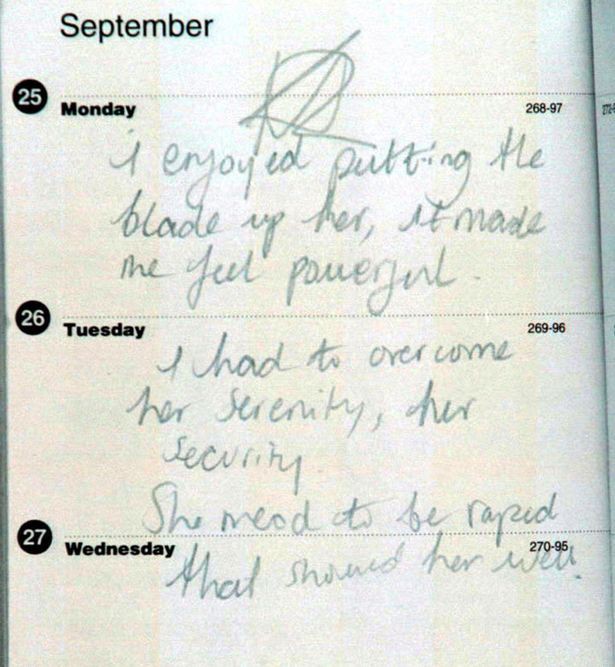 September
25 Monday 268-97
I enjoyed putting the
blade up her, it made
me feel powerful.
26 Tuesday 269-96
I had to overcome
her serenity, her
security.
She need to be raped
27 Wednesday 270-95
that her well.